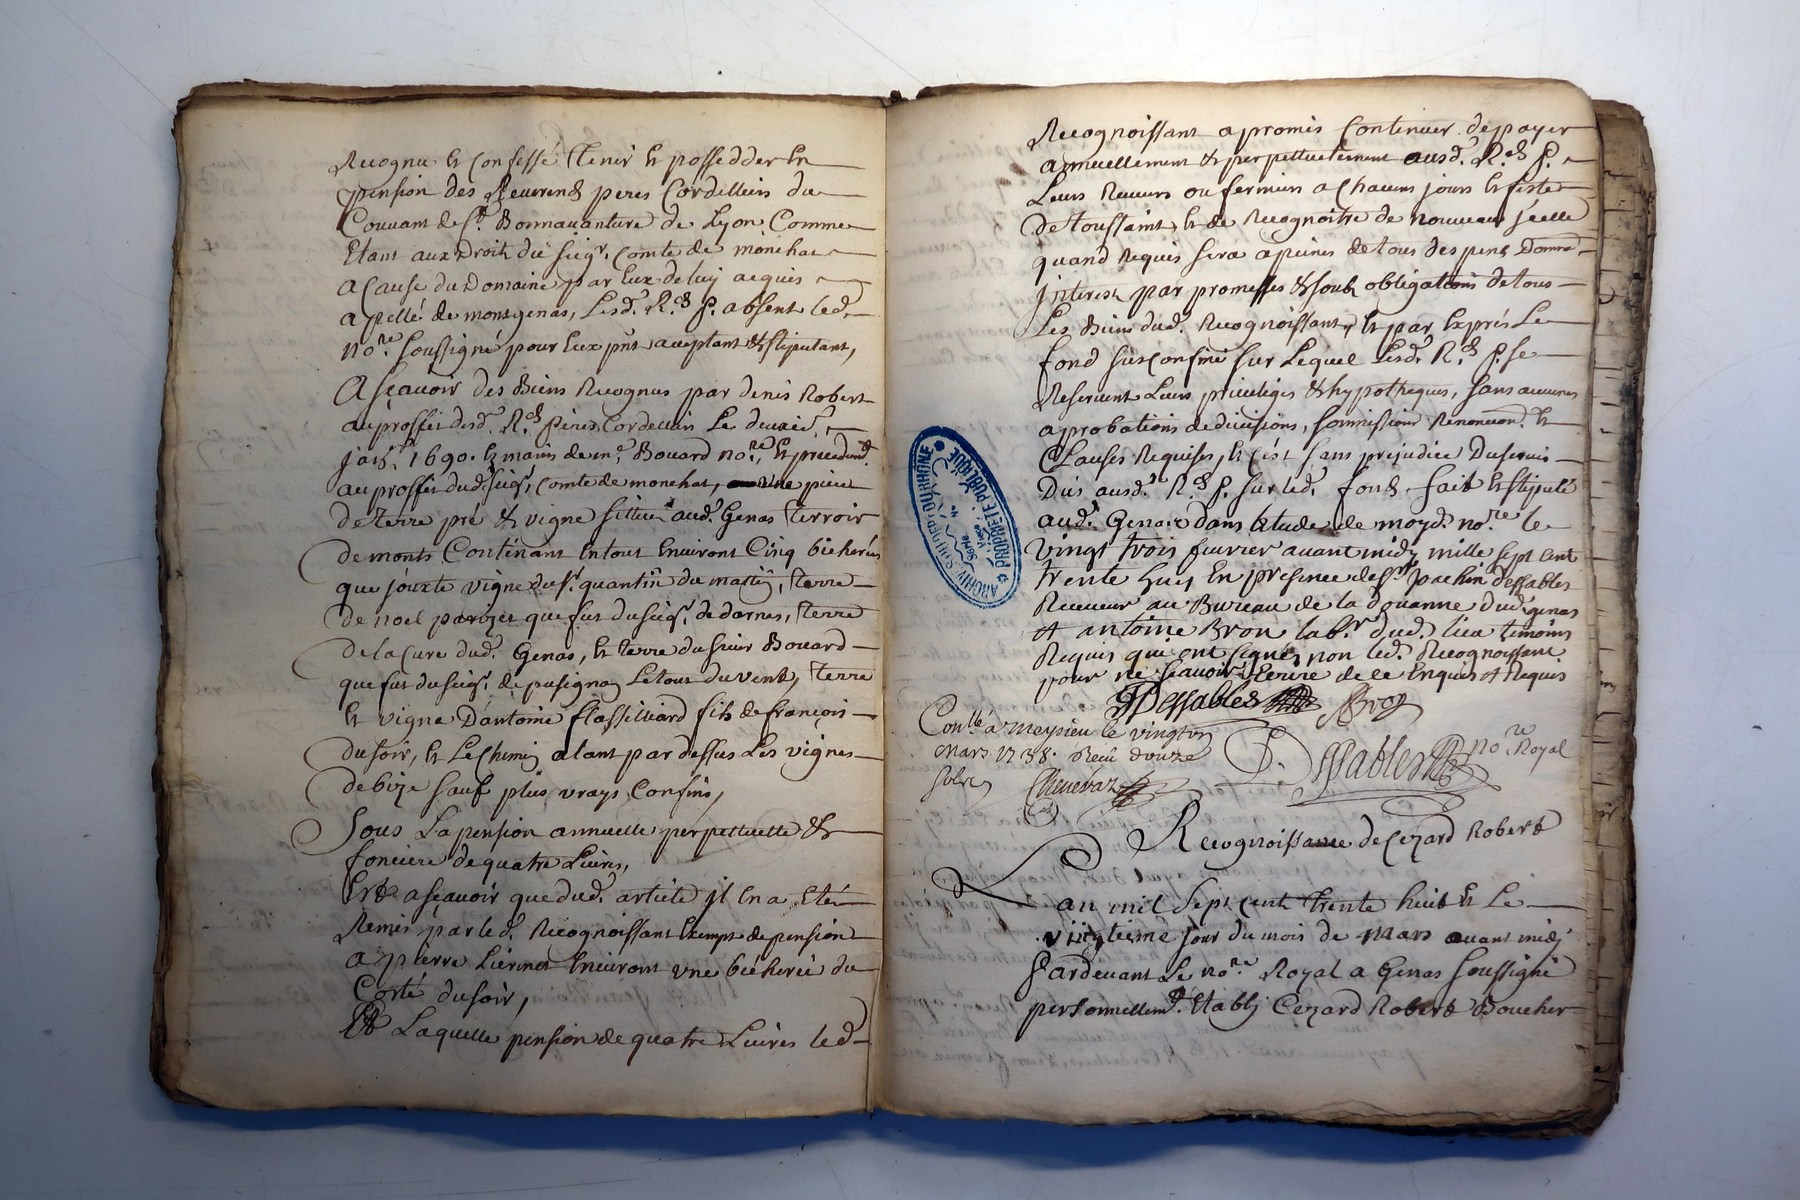 Recognu et confessé tenir et possedder en
pension des Reverends peres Cordelliers du
Couvant de St. Bonnavanture de Lyon Comme
Etant aux Droits du seigr. Comte de monchat
a Cause du Domaine par Eux de luy acquis
apellé de montgenas, Lesd. R.ds P. absent led.
no.re soussigné pour Eux pnt. aceptant & stipulant,
Asçavoir des Biens Recognus par denis Robert
au proffit desd. R.ds peres Cordelliers Le deuxie.
1690. Ez mains de me. Bouard no.re, Et precedemt.
au proffit dud. seigr. comte de monchat, une piece
de terre pré & vigne sittuée aud. Genas terroir
de monts Contenant en tout Environt Cinq bicherées
que jouxte vigne du sr. quantin du matin, terre
de noel que fut du seigr. de darnes, terre
de la cure dud. Genas, et terre du sieur Bouard
que fut du seigr. de pusignan Le tout du vent, terre
Et vigne D'antoine flassilliard fils de françois
du soir, et Le Chemin alant par dessus Les vignes
de bize sauf plus vrays Confins,
Sous La pension annuelle perpettuelle &
fonciere de quatre Livres,
Et asçavoir que dud. article jl En a Eté
Remis par led. Recognoissant Exempt de pension
a pierre Environt une bicherée du
Corté du soir,
Et Laquelle pension de quatre Livres led.
Recognoissant a promis Continuer de payer
annuellement & perpettuellement ausd. R.ds P.
Leurs Receveurs ou fermiers a Chacuns jours et feste
de toussaint, et de Recognoitre de nouveau jcelle
quand Requis sera a peines de tous despens Domma.
jnterest par promesses & sous obligations de tous
Les Biens dud. Recognoissant, et par Exprés Le
fond susconfiné sur Lequel Lesd. R.ds P. se
Reservent Leurs privileges & hypotheques, sans aucunes
aprobations de divisions, sommissions Renonciaon. et
Clauses Requises, et c'est sans prejudice Du servis
Dûs ausd. R.ds P. sur led. fond fait et stipulé
aud. Genas dans Etude de moyd. no.re le
vingt trois fevrier avant midy mille sept cent
trente huit En presence de sr. joachin dessables
Receveur au Bureau de la doüanne dud. genas
et antoine Bron lab.r dud. lieu temoins
Requis qui ont signés non led. Recognoissant
pour ne sçavoir Ecrire de ce Enquis et Requis
JDessables Bron
Con.llé a Meysieu le vingt
Mars 1738. Reçu douze
sols
Dessables no.re Royal
ARCHIVES DU DEP.t DU RHONE
PROPRIETE PUBLIQUE
Recognoissance de Cezard Robert
L'an mil sept cents trente huit et Le
vingtieme jour du mois de Mars avant midy
Pardevant Le no.re Royal a Genas soussigné
personnellemt. Etably Cezard Robert Boucher